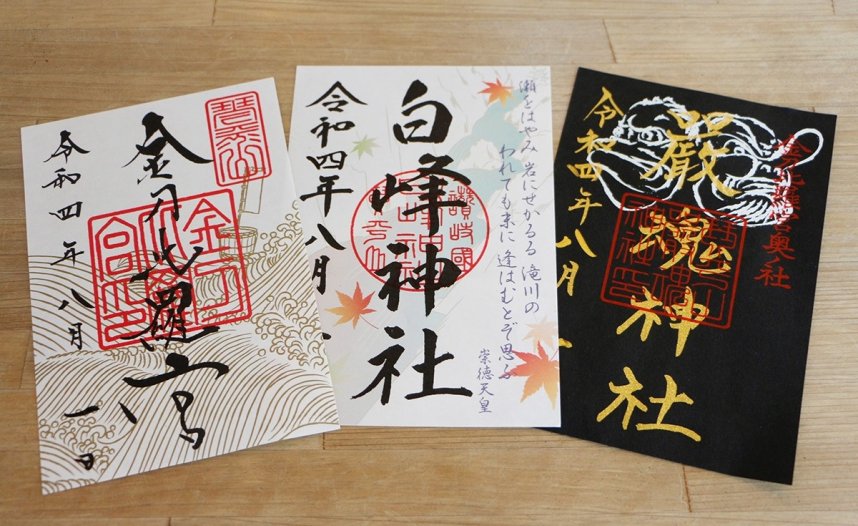 金刀比羅宮
令和四年八月一日
瀬をはやみ 岩にせかるる 滝川の
われても末に 逢はむとぞ思ふ
崇徳天皇
白峰神社
讃岐國
令和四年八月一
嚴魂神社
令和四年八月一